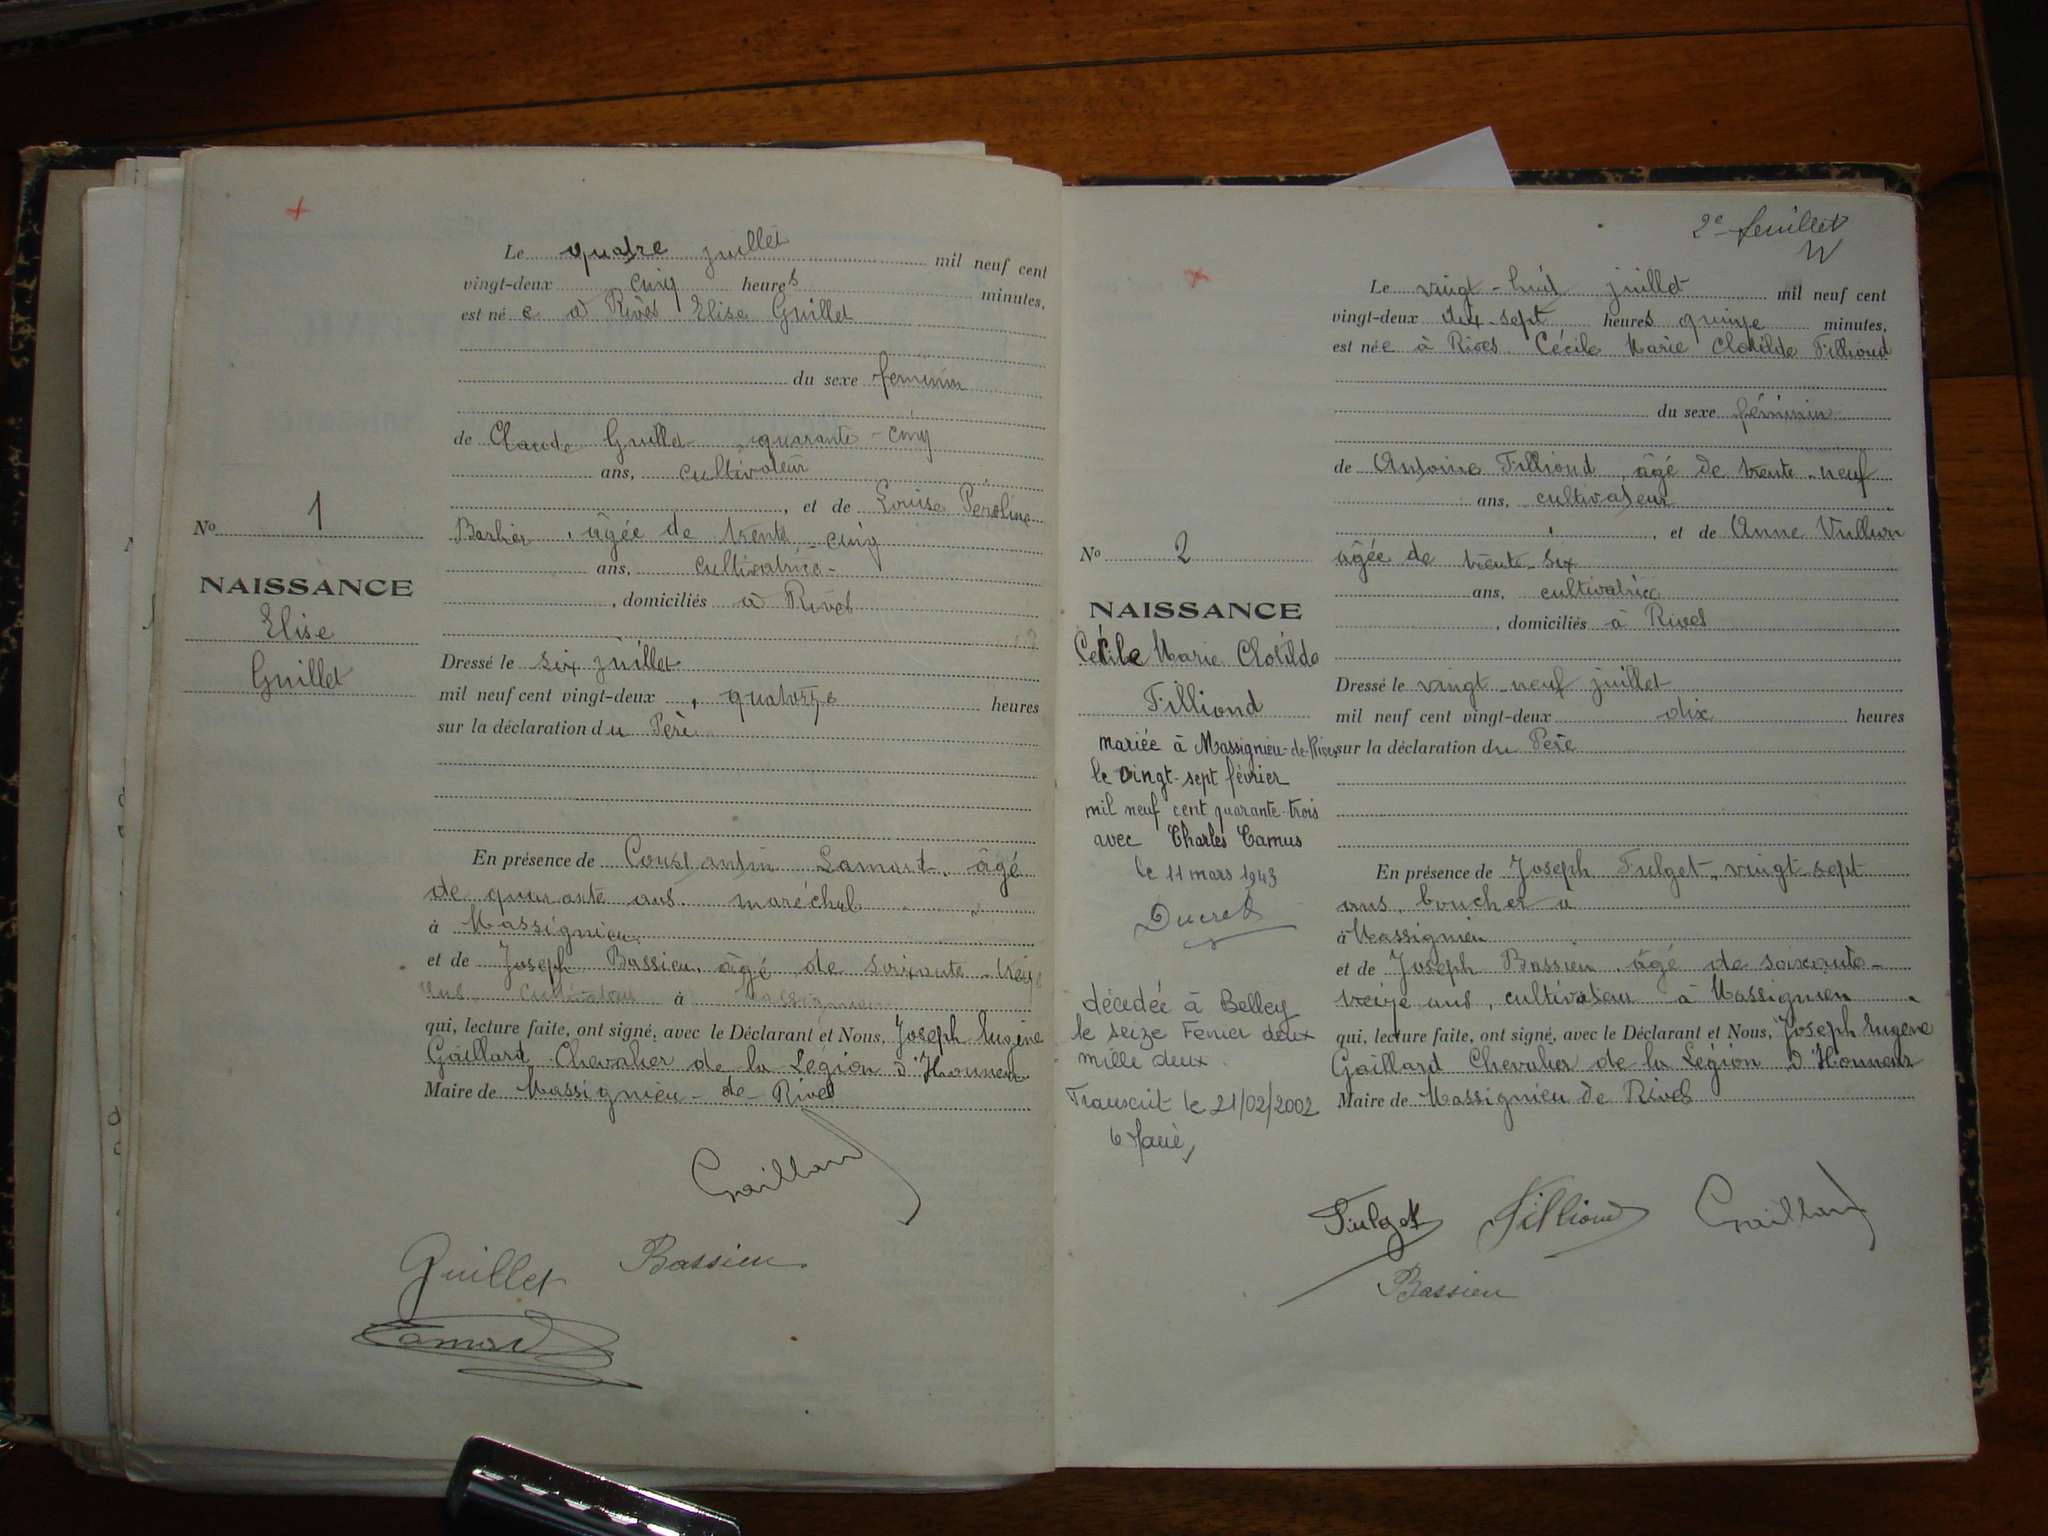 Le quatre juillet mil neuf cent
vingt-deux cinq heures minutes,
est née à Rives Elise Guillet
du sexe feminin
de Claude Guillet quarante-cinq
ans, cultivateur
, et de Louise Péroline
Barbier, âgée de trente-cinq
ans, cultivatrice
, domiciliés à Rives
Nº 1
NAISSANCE
Elise
Guillet
Dressé le six juillet
mil neuf cent vingt-deux, quatorze heures
sur la déclaration du Père
En présence de Constantin Lamard, âgé
de quarante ans, maréchal
à Massignieu
et de Joseph Bassieu, âgé de soixante-treize
ans, cultivateur à Massignieu
qui, lecture faite, ont signé, avec le Déclarant et Nous, Joseph Eugène
Gaillard Chevalier de la Légion d'Honneur
Maire de Massignieu-de-Rives
Gaillard
Guillet Bassieu
2e feuillet
Le vingt-huit juillet mil neuf cent
vingt-deux dix-sept heures quinze minutes,
est née à Rives Cécile Marie Clotilde Fillioud
du sexe féminin
de Antoine Fillioud, âgé de trente-neuf
ans, cultivateur
, et de Anne
âgée de trente-six
ans, cultivatrice
, domiciliés à Rives
Nº 2
NAISSANCE
Cécile Marie Clotilde
Filliond
mariée à Massignieu-de-Rives
le vingt-sept février
mil neuf cent quarante-trois
avec Charles Camus
le 11 mars 1943
Ducret
décédée à Belley
le seize Fevrier deux
mille deux.
Transcrit le 21/02/2002
le Maire,
Dressé le vingt-neuf juillet
mil neuf cent vingt-deux dix heures
sur la déclaration du Père
En présence de Joseph Fulget, vingt sept
ans, boucher à
à Massignieu
et de Joseph Bassieu, âgé de soixante-
treize ans, cultivateur à Massignieu
qui, lecture faite, ont signé, avec le Déclarant et Nous, Joseph Eugène
Gaillard Chevalier de la Légion d'Honneur
Maire de Massignieu de Rives
Fulget Fillioud Gaillard
Bassieu